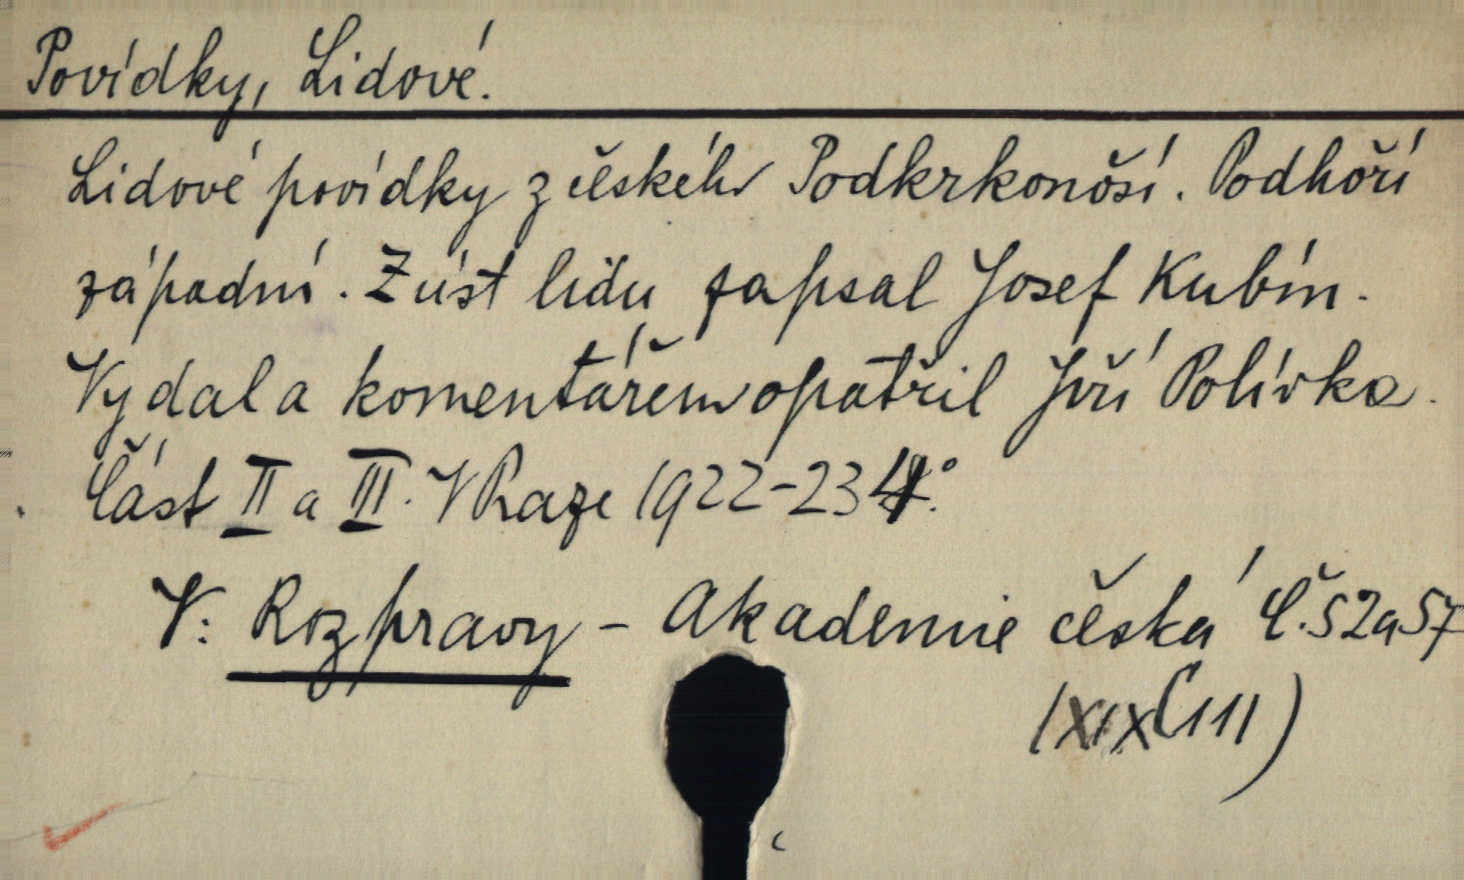 Povídky, Lidové.
Lidové povídky z českého Podkrkonoší. Podhoří
západní. Z úst lidu zapsal Josef Kubín.
Vydal a komentářem opatřil Jiří Polívka.
Část II a III. V Praze 1922-23 4°.
V: Rozpravy - Akademie česká Č. 52 a 57
(XIX C 111)